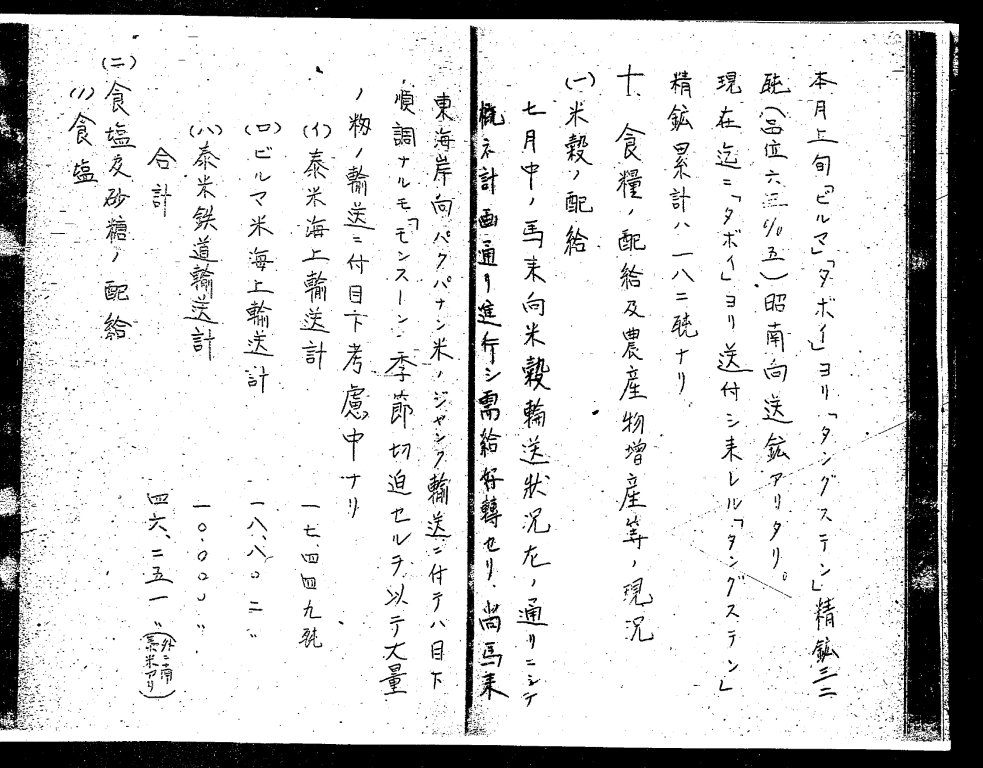 本月上旬「ビルマ」「タボイ」ヨリ「タングステン」精鉱三二
瓲(品位六三%五)昭南向送鉱アリタリ。
現在迄ニ「タボイ」ヨリ送付シ来レル「タングステン」
精鉱累計ハ一八二瓲ナリ
十、食糧ノ配給及農産物増産等ノ現況
(一)米穀ノ配給
七月中ノ馬来向米穀輸送状況左ノ通リニシテ
概ネ計画通リ進行シ需給好轉セリ、尚馬来
東海岸向パクパナン米ノジャンク輸送ニ付テハ目下
順調ナルモ「モンスーン」季節切迫セルヲ以テ大量
ノ籾ノ輸送ニ付目下考慮中ナリ
(イ)泰米海上輸送計 一七、四四九瓲
(ロ)ビルマ米海上輸送計 一八、八〇二〃
(ハ)泰米鉄道輸送計 一〇、〇〇〇〃
合計 四六、二五一〃(外ニ南泰米アリ)
(二)食塩及砂糖ノ配給
(1)食塩